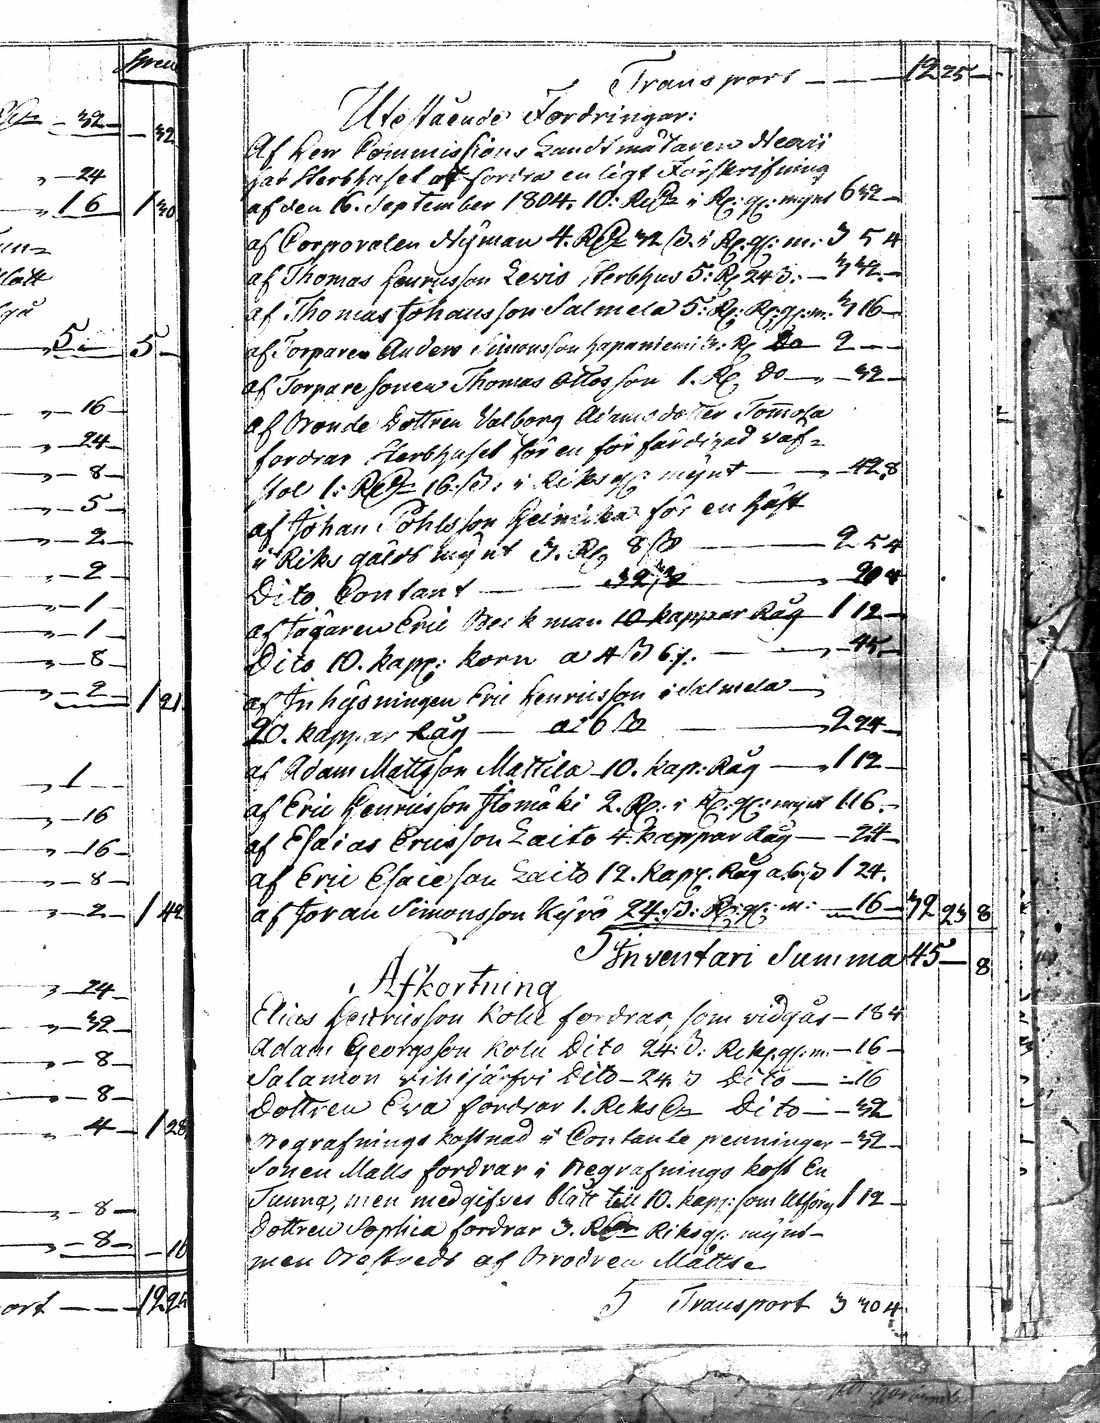 Transport — — — 12 25 —
Utestående Fordringar:
Af Herr Commissions Landtmätaren
har Sterbhuset at fordra enligt Förskrifning
af den 16. September 1804. 10: Rd i R: g: mynt 6 32 —
af Corporalen Nyman 4. Rd 32 ß. i R: g: m: 3 5 4
af Thomas Henricsson Levis Sterbhus 5: R 24 ß: — 3 32 —
af Thomas Johansson Salmela 5: R: R: g: m: 3 16 —
af Torparen Anders Simonsson Hapaniemi 3: R Do 2 — —
af Torpare Sonen Thomas Ottosson 1. R Do — „ — 32 —
af Bonde Dottren Valborg Adamsdotter Tomola
fordrar Sterbhuset för en för färdigad väf=
stol 1: Rd 16: ß: i Riksg: mynt — „ — 42 8
af Johan Påhlsson Heinicka för en Häst
i Riks gälds mynt 3. R 8 ß — 2 5 4
Dito Contant — 32 ß —
af Jägaren Eric Beckman 10 kappar Råg 1 12 —
Dito 10. kapp: korn a 4 ß 6 r. — „ — 45 —
af Inhysningen Eric Henricsson i Salmela — „
20. kappar Råg — a 6 ß — 2 24 —
af Adam Mattsson Mattila 10. kap: Råg — „ 1 12 —
af Eric Henricsson 2. R: i R: g: mynt 1 16 —
af Esaias Ericsson Laito 4. kappar Råg — — 24 —
af Eric Esaiesson Laito 12. kapp. Råg a. 6 ß 1 24.
af Joran Simonsson Kyrö 24: ß: R: g: m: — 16 — 32 23 8
Inventarii Summa 45 — 8
Afkortning
Elias Henricsson Kolu fordrar, som vidgås — 18 4
Adam Georgsson Kolu Dito 24: ß: Riksg: m: — 16 —
Salamon Vihijärfvi Dito — 24 ß Dito — — 16
Dottren Eva fordrar 1. Riksd Dito — — 32
Begrafnings kostnad i Contante penningar — 32 —
Sonen Matts fordrar i Begrafnings kost En
Tunna, men medgifves blått till 10. kapp: som 1 12 —
Dottren Sophia fordrar 3. Rd Riksg: mynt —
men Bestreds af Brodren Matts.
Transport 3 30 4
32 — 32
„ — 24
„ 16 1 30
5 — 5 —
„ — 16
„ — 24
„ — 8
„ — 5
„ — 2
„ — 2
„ — 1
„ — 1
„ — 8
„ — 2 1 21
„ 1 —
„ — 16
„ — 16
„ — 8
„ — 2 1 42
„ — 24
„ — 32
„ — 8
„ — 8
„ — 4 1 28
„ — 8
„ — 8 — 16
ort — — — 12 25